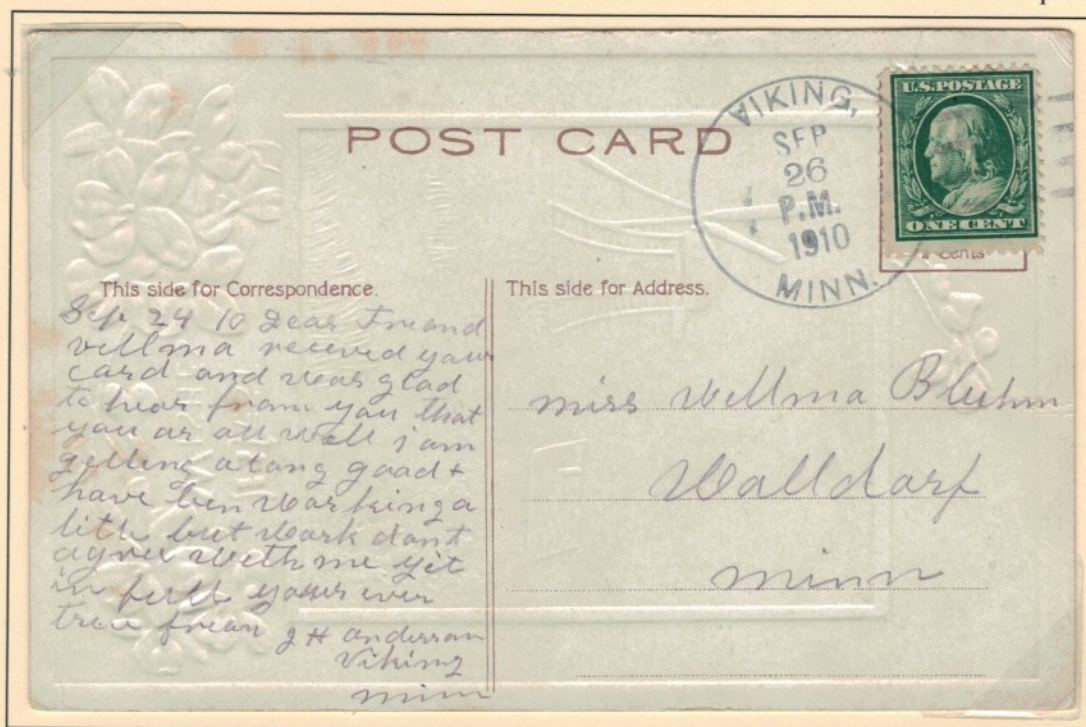 POST CARD
VIKING,
SEP
26
P.M.
1910
MINN.
U.S. POSTAGE
ONE CENT
Cents
This side for Correspondence.
Sep 24 10 Dear Freand
vellma receved your
card and was glad
to hear from you that
you ar all well i am
getting along good +
have ben Working a
litle but Work dont
agree With me yet
in full yours ever
true frean J H anderson
Viking
minn
This side for Address.
miss Vellma Bluhm
Walldorf
minn